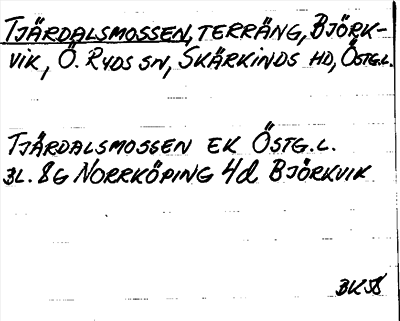 TJÄRDALSMOSSEN, TERRÄNG, BJÖRK-
VIK, Ö. RYDS SN, SKÄRKINDS HD, ÖSTG.L.
TJÄRDALSMOSSEN EK ÖSTG.L.
BL. 8G NORRKÖPING 4d BJÖRKVIK
BK58